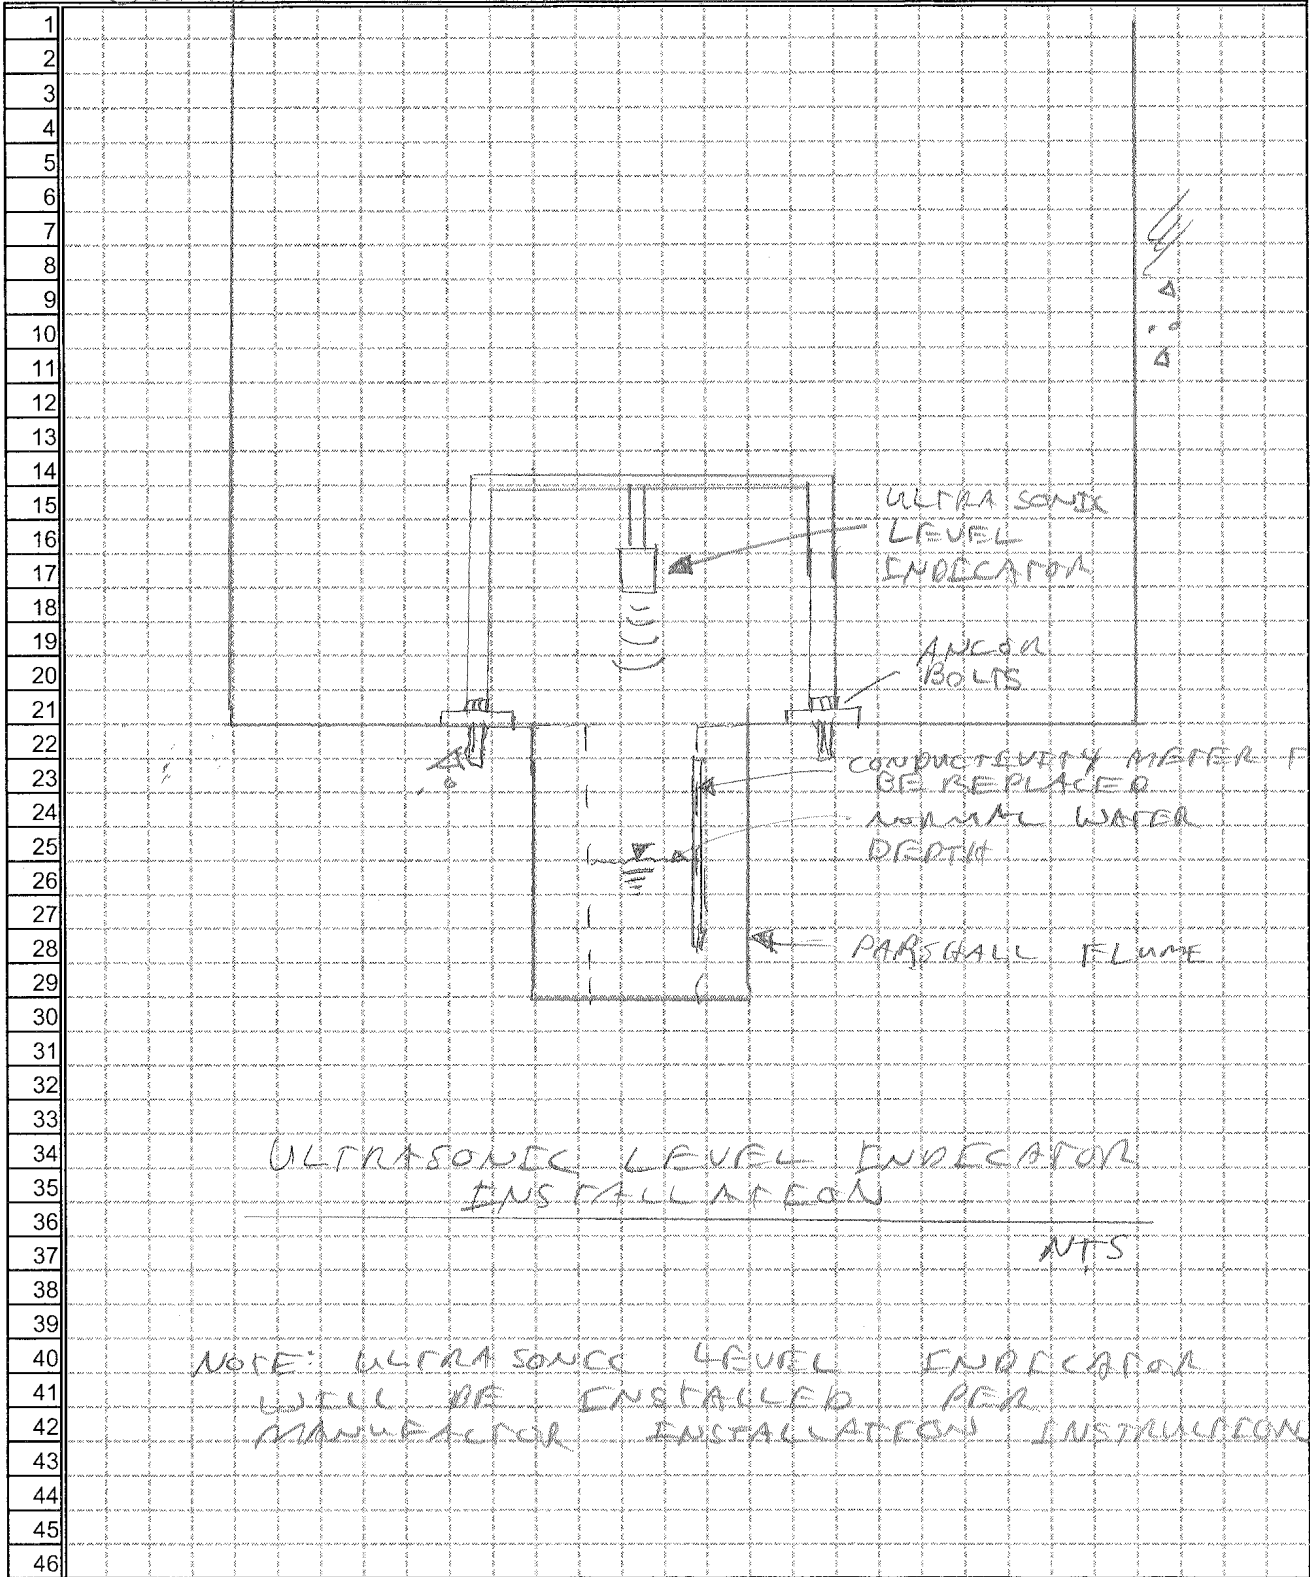 1
2
3
4
5
6
7
8
9
10
11
12
13
14
15
16
17
18
19
20
21
22
23
24
25
26
27
28
29
30
31
32
33
34
35
36
37
38
39
40
41
42
43
44
45
46
ULTRA SONIC
LEVEL
INDICATOR
ANCOR
BOLTS
CONDUCTIVITY METER
BE REPLACED
NORMAL WATER
DEPTH
PARSHALL FLUME
ULTRASONIC LEVEL INDICATOR
INSTALLATION
NTS
NOTE: ULTRA SONIC LEVEL INDICATOR
WILL BE INSTALLED PER
MANUFACTOR INSTALLATION INSTRUCTION